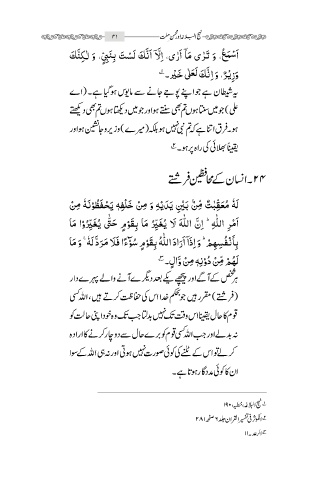 ۳۱
اَسْمَعُ، وَ تَرٰى مَآ اَرٰى، اِلَّاۤ اَنَّكَ لَسْتَ بِنَبِيٍّ، وَ لٰكِنَّكَ
وَزِيْرٌ، وَ اِنَّكَ لَعَلٰى خَيْرٍ۔ ؎۱
یہ شیطان ہے جو اپنے پوجے جانے سے مایوس ہو گیا ہے۔ (اے
علی) جو میں سنتا ہوں تم بھی سنتے ہو اور جو میں دیکھتا ہوں تم بھی دیکھتے
ہو۔ فرق اتنا ہے کہ تم نبی نہیں ہو بلکہ (میرے) وزیر و جانشین ہو اور
یقیناً بھلائی کی راہ پر ہو۔ ؎۲
۲۴۔ انسان کے محافظین فرشتے
لَهٗ مُعَقِّبٰتٌ مِّنْۢ بَيْنِ يَدَيْهِ وَ مِنْ خَلْفِهٖ يَحْفَظُوْنَهٗ مِنْ
اَمْرِ اللّٰهِ ؕ اِنَّ اللّٰهَ لَا يُغَيِّرُ مَا بِقَوْمٍ حَتّٰى يُغَيِّرُوْا مَا
بِاَنْفُسِهِمْ ؕ وَ اِذَاۤ اَرَادَ اللّٰهُ بِقَوْمٍ سُوْٓءًا فَلَا مَرَدَّ لَهٗ ۚ وَ مَا
لَهُمْ مِّنْ دُوْنِهٖ مِنْ وَّالٍ۔ ؎۳
ہر شخص کے آگے اور پیچھے یکے بعد دیگرے آنے والے پہرے دار
(فرشتے) مقرر ہیں جو بحکم خدا اس کی حفاظت کرتے ہیں، اللہ کسی
قوم کا حال یقیناً اس وقت تک نہیں بدلتا جب تک وہ خود اپنی حالت کو
نہ بدلے اور جب اللہ کسی قوم کو برے حال سے دوچار کرنے کا ارادہ
کر لے تو اس کے ٹلنے کی کوئی صورت نہیں ہوتی اور نہ ہی اللہ کے سوا
ان کا کوئی مددگار ہوتا ہے۔
؎۱ نہج البلاغہ، خطبہ ۱۹۰
؎۲ الکوثر فی تفسیر القرآن جلد ۶ صفحہ ۲۸۱
؎۳ الرعد۔ ۱۱